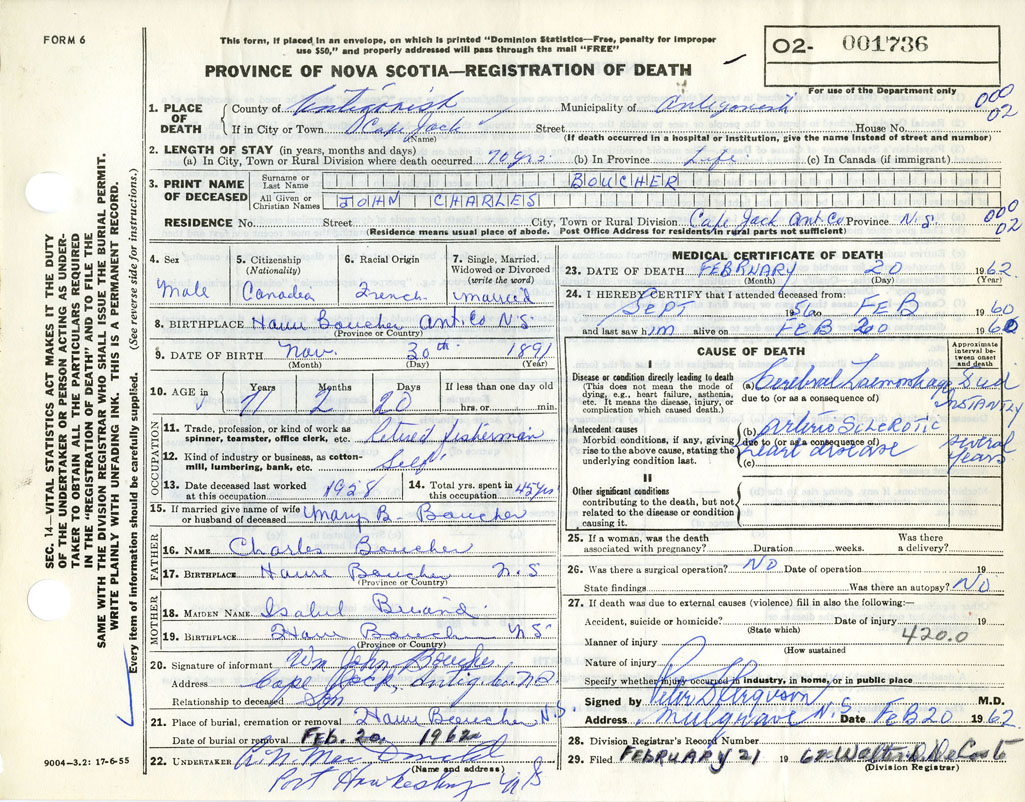 FORM 6
This form, if placed in an envelope, on which is printed "Dominion Statistics—Free, penalty for improper
use $50," and properly addressed will pass through the mail "FREE"
O2- 001736
For use of the Department only
PROVINCE OF NOVA SCOTIA—REGISTRATION OF DEATH
000
02
1. PLACE OF DEATH County of Antigonish Municipality of Antigonish
If in City or Town Cape Jack Street House No.
(Name) (If death occurred in a hospital or institution, give the name instead of street and number)
2. LENGTH OF STAY (in years, months and days)
(a) In City, Town or Rural Division where death occurred 70 yrs. (b) In Province Life. (c) In Canada (if immigrant)
3. PRINT NAME OF DECEASED Surname or Last Name BOUCHER
All Given or Christian Names JOHN CHARLES
RESIDENCE No. Street City, Town or Rural Division Cape Jack Ant. Co Province N.S.
000
02
(Residence means usual place of abode. Post Office Address for residents in rural parts not sufficient)
4. Sex Male
5. Citizenship (Nationality) Canadian
6. Racial Origin French
7. Single, Married, Widowed or Divorced (write the word) married
8. BIRTHPLACE Havre Boucher Ant. Co N S
(Province or Country)
9. DATE OF BIRTH Nov. 30th 1891
(Month) (Day) (Year)
10. AGE in Years Months Days If less than one day old
71 2 20 hrs. or min.
OCCUPATION
11. Trade, profession, or kind of work as spinner, teamster, office clerk, etc. Retired fisherman
12. Kind of industry or business, as cotton-mill, lumbering, bank, etc. Self
13. Date deceased last worked at this occupation 1958
14. Total yrs. spent in this occupation 45 yrs
15. If married give name of wife or husband of deceased Mary B. Boucher
FATHER
16. NAME Charles Boucher
17. BIRTHPLACE Havre Boucher N S
(Province or Country)
MOTHER
18. MAIDEN NAME Isabel
19. BIRTHPLACE Havre Boucher N S
(Province or Country)
20. Signature of informant Wm John Boucher
Address Cape Jack, Antig. Co. N S
Relationship to deceased Son
21. Place of burial, cremation or removal Havre Boucher N.S.
Date of burial or removal Feb. 1962
22. UNDERTAKER
(Name and address)
Port Hawkesbury N S
9004—3.2: 17-6-55
MEDICAL CERTIFICATE OF DEATH
23. DATE OF DEATH FEBRUARY 20 1962
(Month) (Day) (Year)
24. I HEREBY CERTIFY that I attended deceased from:
SEPT 1956 to FEB 1960
and last saw him alive on FEB 20 196
CAUSE OF DEATH
Approximate interval between onset and death
I
Disease or condition directly leading to death
(This does not mean the mode of dying, e.g., heart failure, asthenia, etc. It means the disease, injury, or complication which caused death.)
(a) Cerebral Haemorrhage
due to (or as a consequence of)
INSTANTLY
Antecedent causes
Morbid conditions, if any, giving rise to the above cause, stating the underlying condition last.
(b) Arterio SCLEROTIC
due to (or as a consequence of)
(c) heart disease
several years
II
Other significant conditions
contributing to the death, but not related to the disease or condition causing it.
25. If a woman, was the death associated with pregnancy? Duration weeks. Was there a delivery?
26. Was there a surgical operation? NO Date of operation 19
State findings Was there an autopsy? NO
27. If death was due to external causes (violence) fill in also the following:—
Accident, suicide or homicide? Date of injury 19
(State which)
420.0
Manner of injury
(How sustained
Nature of injury
Specify whether injury occurred in industry, in home, or in public place
Signed by Peter S Ferguson M.D.
Address Mulgrave N.S Date FEB 20 1962
28. Division Registrar's Record Number
29. Filed FEBRUARY 21 1962
(Division Registrar)
SEC. 14—VITAL STATISTICS ACT MAKES IT THE DUTY
OF THE UNDERTAKER OR PERSON ACTING AS UNDER-
TAKER TO OBTAIN ALL THE PARTICULARS REQUIRED
IN THE "REGISTRATION OF DEATH" AND TO FILE THE
SAME WITH THE DIVISION REGISTRAR WHO SHALL ISSUE THE BURIAL PERMIT.
WRITE PLAINLY WITH UNFADING INK. THIS IS A PERMANENT RECORD.
Every item of information should be carefully supplied. (See reverse side for instructions.)